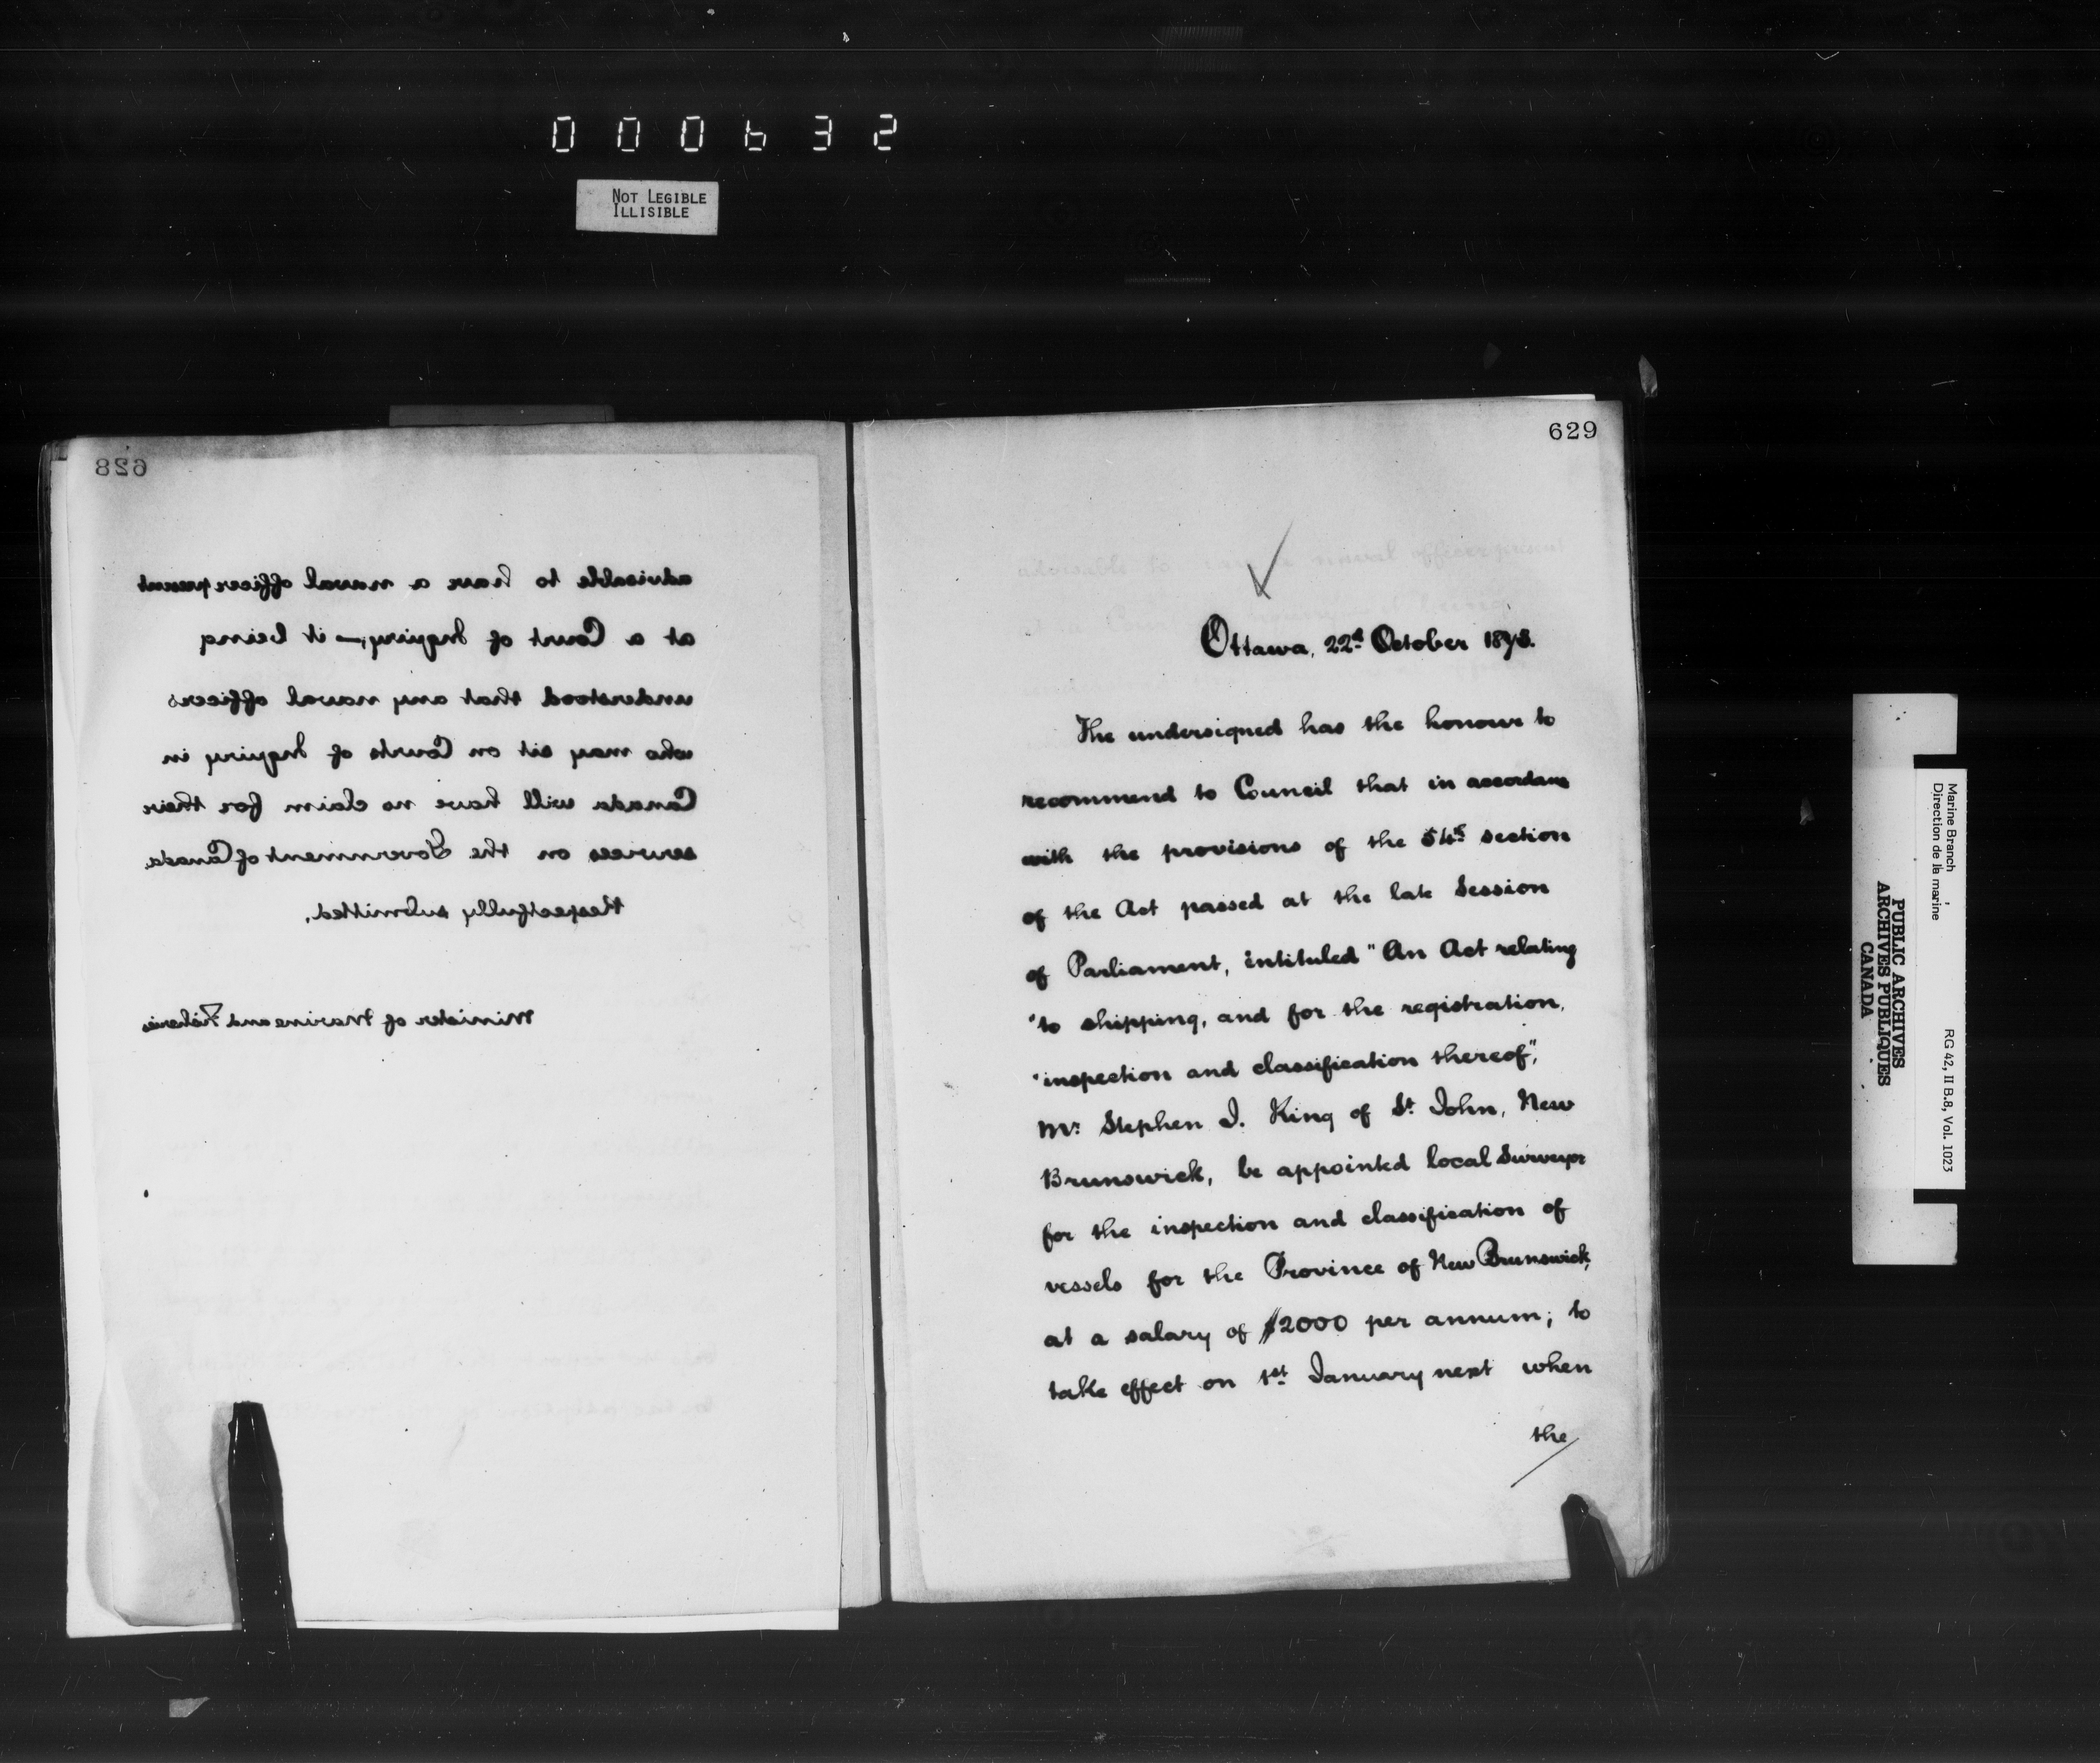 000632
NOT LEGIBLE
ILLISIBLE
628
advisable to have a naval officer present
at a Court of Inquiry,— it being
understood that any naval officers
who may sit on Courts of Inquiry in
Canada will have no claim for their
services on the Government of Canada.
Respectfully submitted,
Minister of Marine and Fisheries
629
Ottawa, 22d October 1873.
The undersigned has the honour to
recommend to Council that in accordance
with the provisions of the 54th section
of the Act passed at the late Session
of Parliament, intituled "An Act relating
"to shipping, and for the registration,
"inspection and classification thereof",
Mr. Stephen J. King of St. John, New
Brunswick, be appointed local Surveyor
for the inspection and classification of
vessels for the Province of New Brunswick,
at a salary of $2000 per annum; to
take effect on 1st January next when
the
Marine Branch
Direction de la marine
RG 42, II B.8, Vol. 1023
PUBLIC ARCHIVES
ARCHIVES PUBLIQUES
CANADA